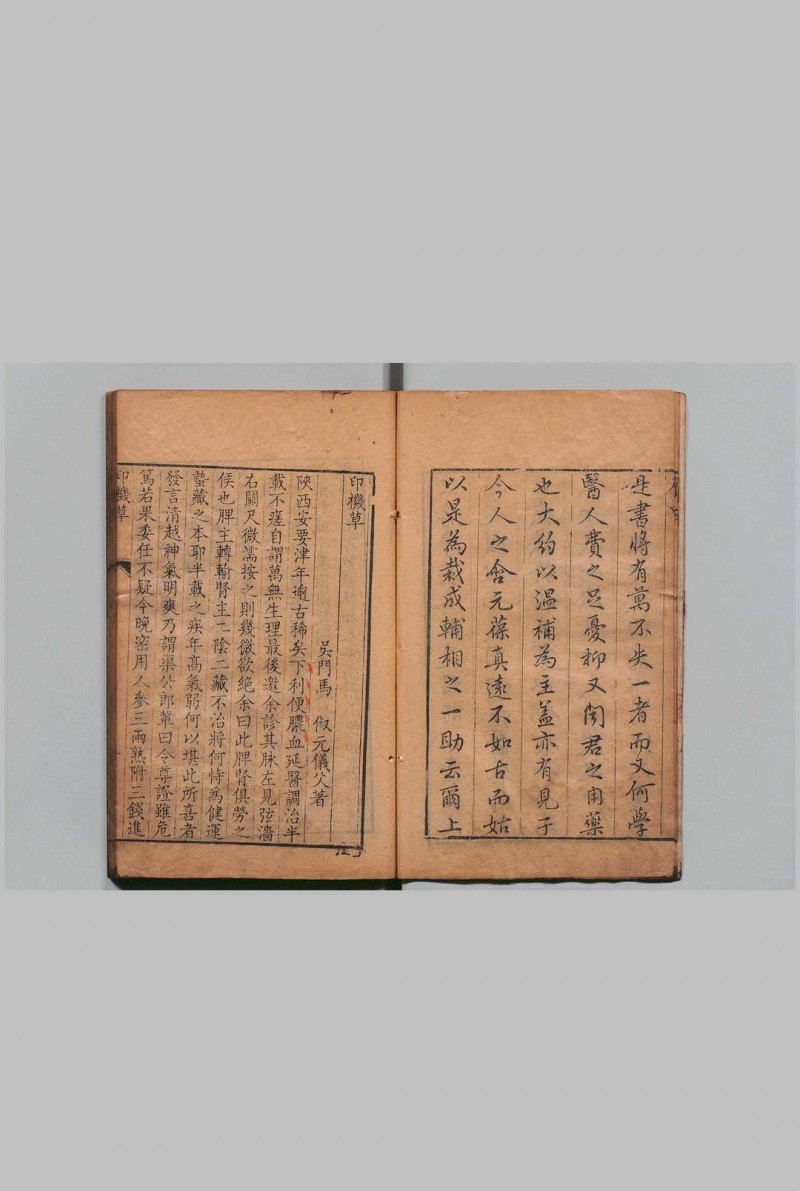 是書將有萬不失一者而又何學
醫人費之足憂抑又聞君之用藥
也大約以溫補為主蓋亦有見于
今人之含元葆真遠不如古而姑
以是為裁成輔相之一助云爾上
印機草
吳門馬俶元儀父著
陝西安要津年逾古稀矣下利便膿血延醫調治半
載不瘥自謂萬無生理最後邀余診其脉左見弦濇
右關尺微濡按之則幾微欲絕余曰此脾腎俱勞之
候也脾主轉輸腎主二陰二藏不治將何恃為健運
蟄藏之本耶半載之疾年高氣弱何以堪此所喜者
發言清越神氣明爽乃謂渠公郎輩曰令尊證雖危
篤若果委任不疑今晚密用人參三兩熟附三錢進
印機草